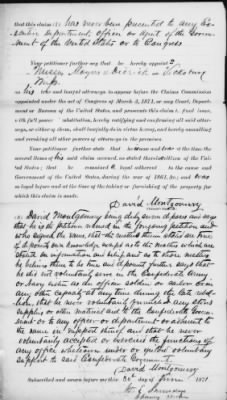 that this claim has never been presented to any Ex-
ecutive Department, officer or agent of the Govern-
ment of the United States or to Congress
Your petitioner further say that he hereby appoint
Messrs Moyers & Dedrick Vicksburg
Miss.
his true and lawful attorneys to appear before the Claims Commission
appointed under the act of Congress of March 3, 1871, or any Court, Depart-
ment or Bureau of the United States, and prosecute this claim to final issue,
with full power of substitution, hereby ratifying and confirming all said attor-
neys, or either of them, shall lawfully do in virtue hereof, and hereby annulling
and revoking all other powers of attorneys in the premises.
Your petitioner further state that he was at the time the
several items of his said claim accrued, as stated therein, citizen of the
United States; that he remained loyal adhered to the cause and
Government of the United States, during the war of 1861, &c.; and was
so loyal before and at the time of the taking or furnishing of the property for
which this claim is made.
David Montgomery
David Montgomery being duly sworn deposes and says
that he is the petitioner named in the foregoing petition and
who signed the same, that the matters therein stated are true
of deponents own knowledge except as to the matters which are
stated on information and belief, and as to those matters
he believes them to be true and deponent further says that
he did not voluntarily serve in the Confederate Army
or Navy either as an officer soldier or sailor or in
any other capacity at any time during the late rebel-
lion, that he never voluntarily furnished any stores
supplies or other material aid to the Confederate Govern-
ment or to any officer or department or adherent to
the same in support thereof and that he never
voluntarily accepted or exercised the functions of
any office whatsoever under or yielded voluntary
support to said Confederate Government
David Montgomery
Subscribed and sworn before me 26 day of June 1871